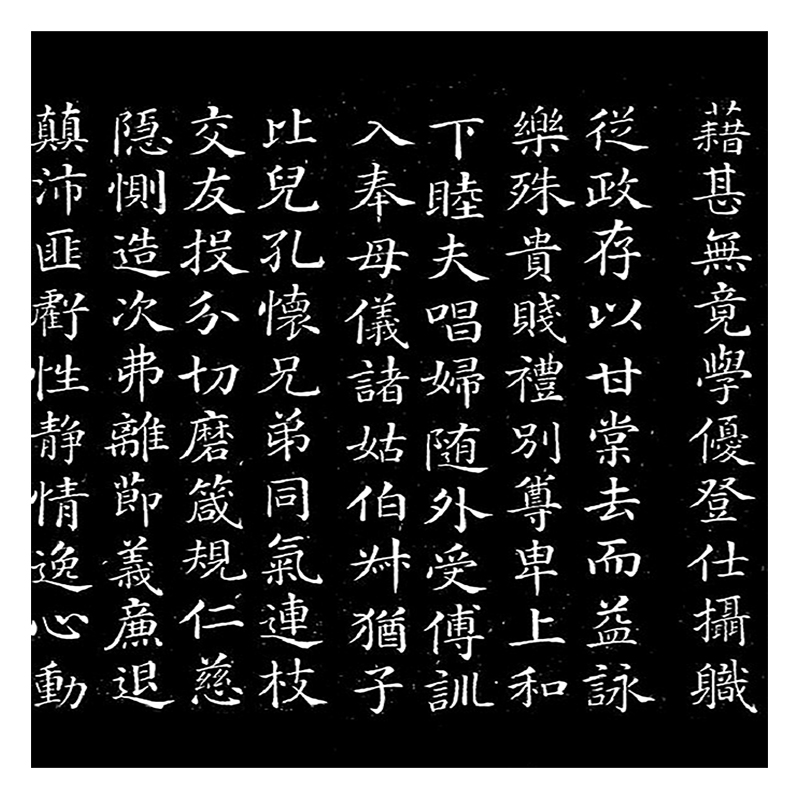 藉甚無竟學優登仕攝職
從政存以甘棠去而益詠
樂殊貴賤禮別尊卑上和
下睦夫唱婦随外受傅訓
入奉母儀諸姑伯升猶子
比兒孔懷兄弟同氣連枝
交友投分切磨箴規仁慈
隐惻造次弗離節義廉退
顛沛匪虧性静情逸心動